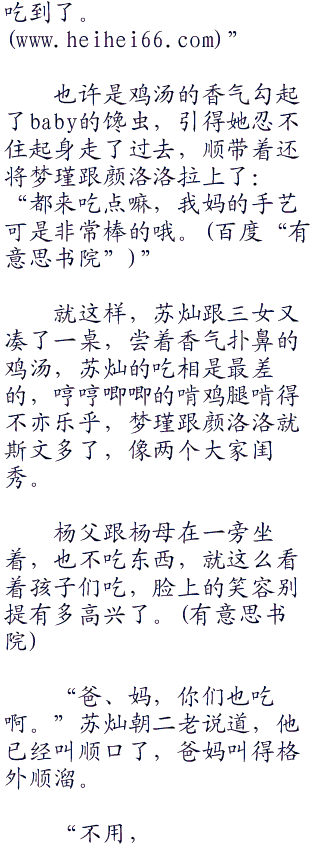 吃到了。
(www.heihei66.com)”
也许是鸡汤的香气勾起
了baby的馋虫，引得她忍不
住起身走了过去，顺带着还
将梦瑾跟颜洛洛拉上了：
“都来吃点嘛，我妈的手艺
可是非常棒的哦。(百度“有
意思书院”)”
就这样，苏灿跟三女又
凑了一桌，尝着香气扑鼻的
鸡汤，苏灿的吃相是最差
的，哼哼唧唧的啃鸡腿啃得
不亦乐乎，梦瑾跟颜洛洛就
斯文多了，像两个大家闺
秀。
杨父跟杨母在一旁坐
着，也不吃东西，就这么看
着孩子们吃，脸上的笑容别
提有多高兴了。(有意思书
院)
“爸、妈，你们也吃
啊。”苏灿朝二老说道，他
已经叫顺口了，爸妈叫得格
外顺溜。
“不用，